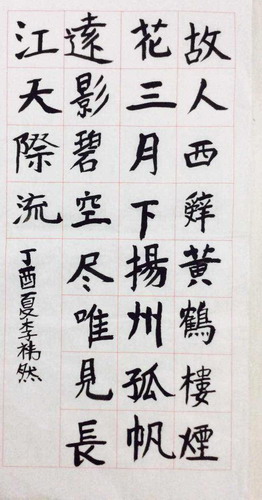 故人西辤黃鶴樓煙
花三月下揚州孤帆
遠影碧空尽唯見長
江天際流
丁酉夏李祎然